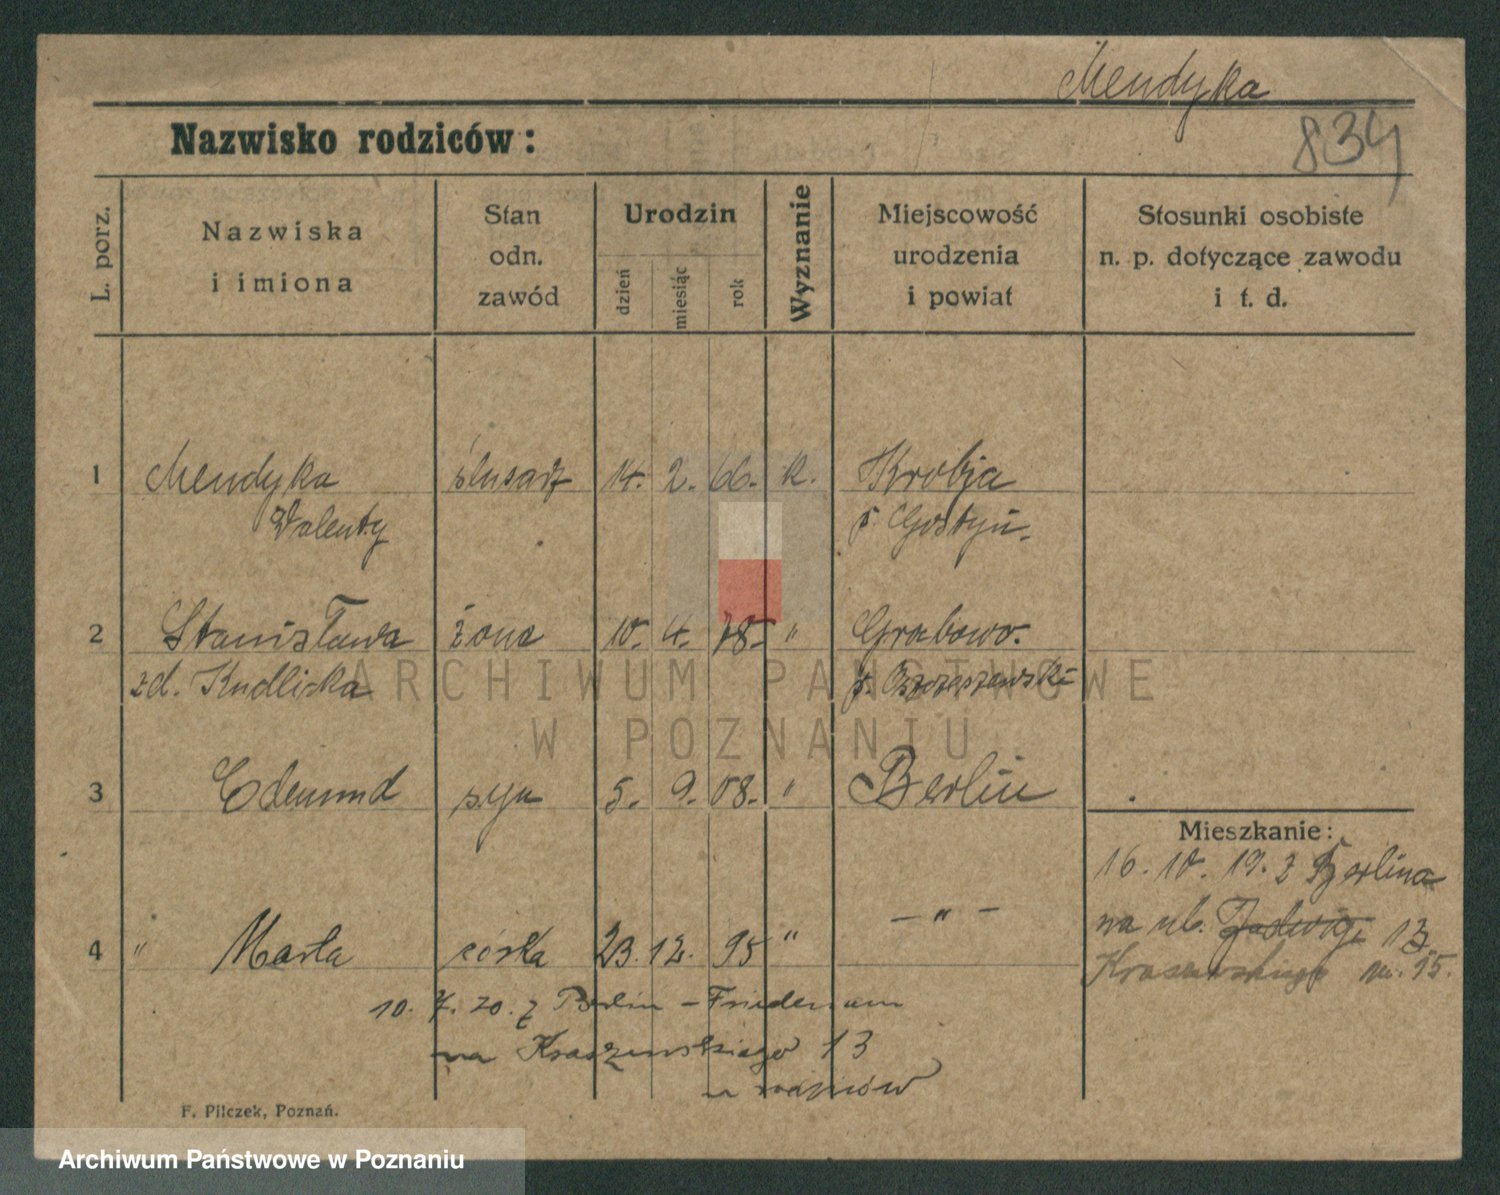 Mendyka
834
Nazwisko rodziców:
L. porz.
Nazwiska
i imiona
Stan
odn.
zawód
Urodzin
dzień
miesiąc
rok
Wyznanie
Miejscowość
urodzenia
i powiat
Stosunki osobiste
n. p. dotyczące zawodu
i t. d.
1 Mendyka ślusarz 14. 2. 66. k. Krobja
Walenty p. Gostyń.
2 Stanisława żona 10. 4. 78. " Grabowo.
zd. Kudliska p.
3 Edmund syn 5. 9. 08. " Berlin
Mieszkanie:
16. 10. 19. z Berlina
na ul. Jadwigi 13
4 " Marta córka 23. 12. 95 " — " —
Kraszewskiego nr. 15.
10. 7. 20. z Berlin - Friedenau
na Kraszewskiego 13
F. Pilczek, Poznań.
ARCHIWUM PAŃSTWOWE
W POZNANIU
Archiwum Państwowe w Poznaniu